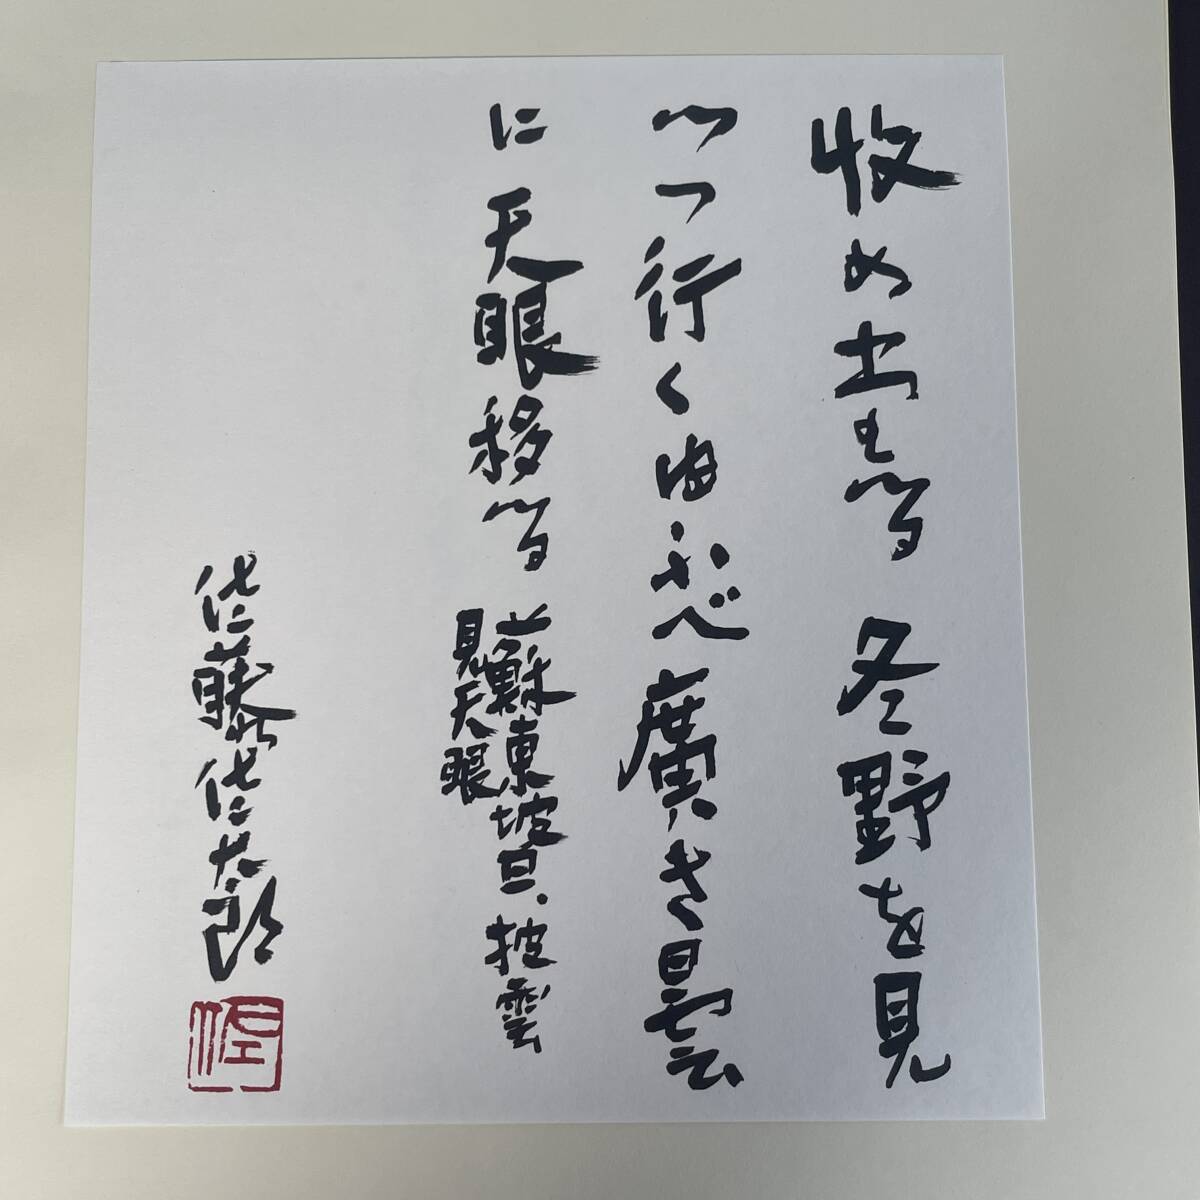 收め冬野を見
つつ行くゆふべ廣き曇
に天眼移
蘇東坡曰、披雲
見天眼
佐藤佐太郎
佐